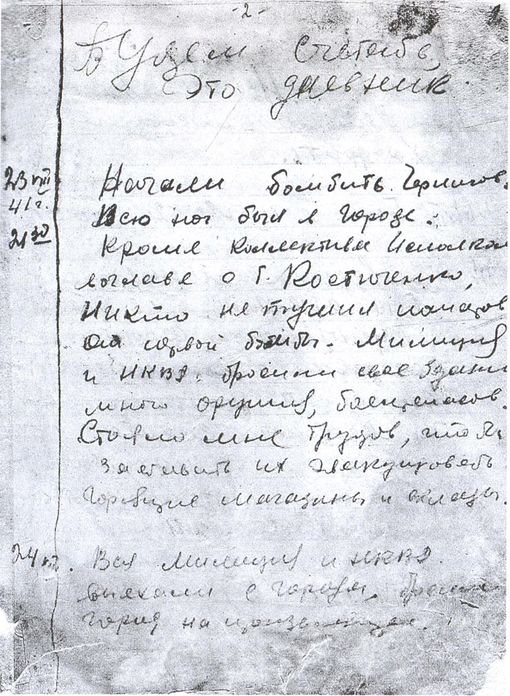 -2-
Будем считать,
Это дневник.
23 VIII
41 г.
21 30
Начали бомбить Чернигов.
Всю ноч был в городе.
Кроме коллектива Исполком
воглаве с Г. Костюченко,
Никто не тушил пожаров
от первой бомбы. Милиция
и НКВД. бросили свое здани
много оружия, боеприпасов.
Стояло мне трудов, что бы
заставить их эвакуировать
горевшие магазины и склады.
24
Вся Милиция и НКВД.
выехали с города, бросив
город на произвол